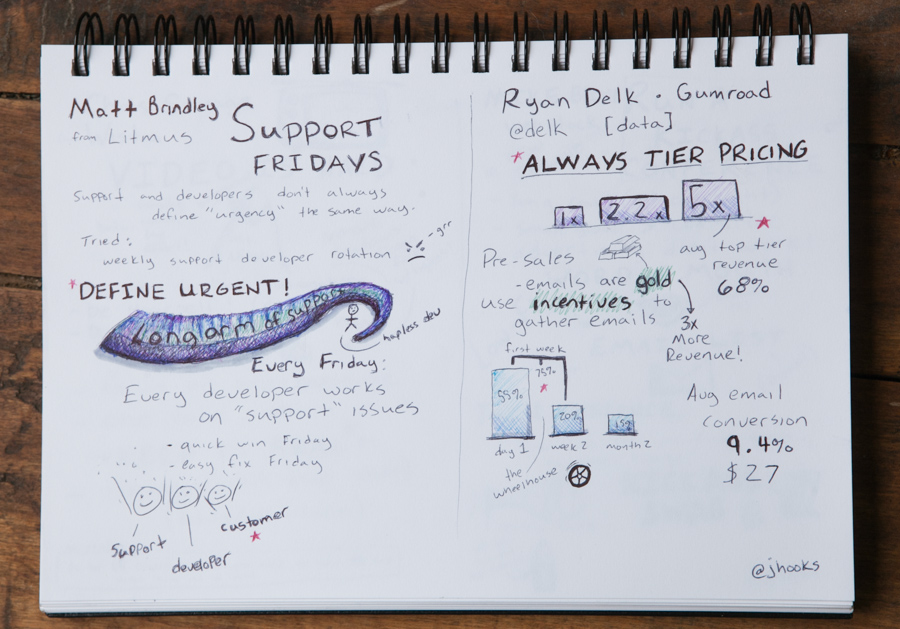 Matt Brindley
from Litmus
SUPPORT
FRIDAYS
Support and developers don't always
define "urgency" the same way.
Tried:
weekly support developer rotation
-grr
*DEFINE URGENT!
Long arm of support
hapless dev
Every Friday:
Every developer works
on "support" issues
- quick win Friday
- easy fix Friday
support
developer
customer
Ryan Delk • Gumroad
@delk [data]
*ALWAYS TIER PRICING
1x
2.2x
5x
avg top tier
revenue
68%
Pre-sales
- emails are gold
use incentives to
gather emails
3x
More
Revenue!
first week
75%
55%
20%
15%
day 1
week 2
month 2
the
wheelhouse
Avg email
conversion
9.4%
$27
@jhooks